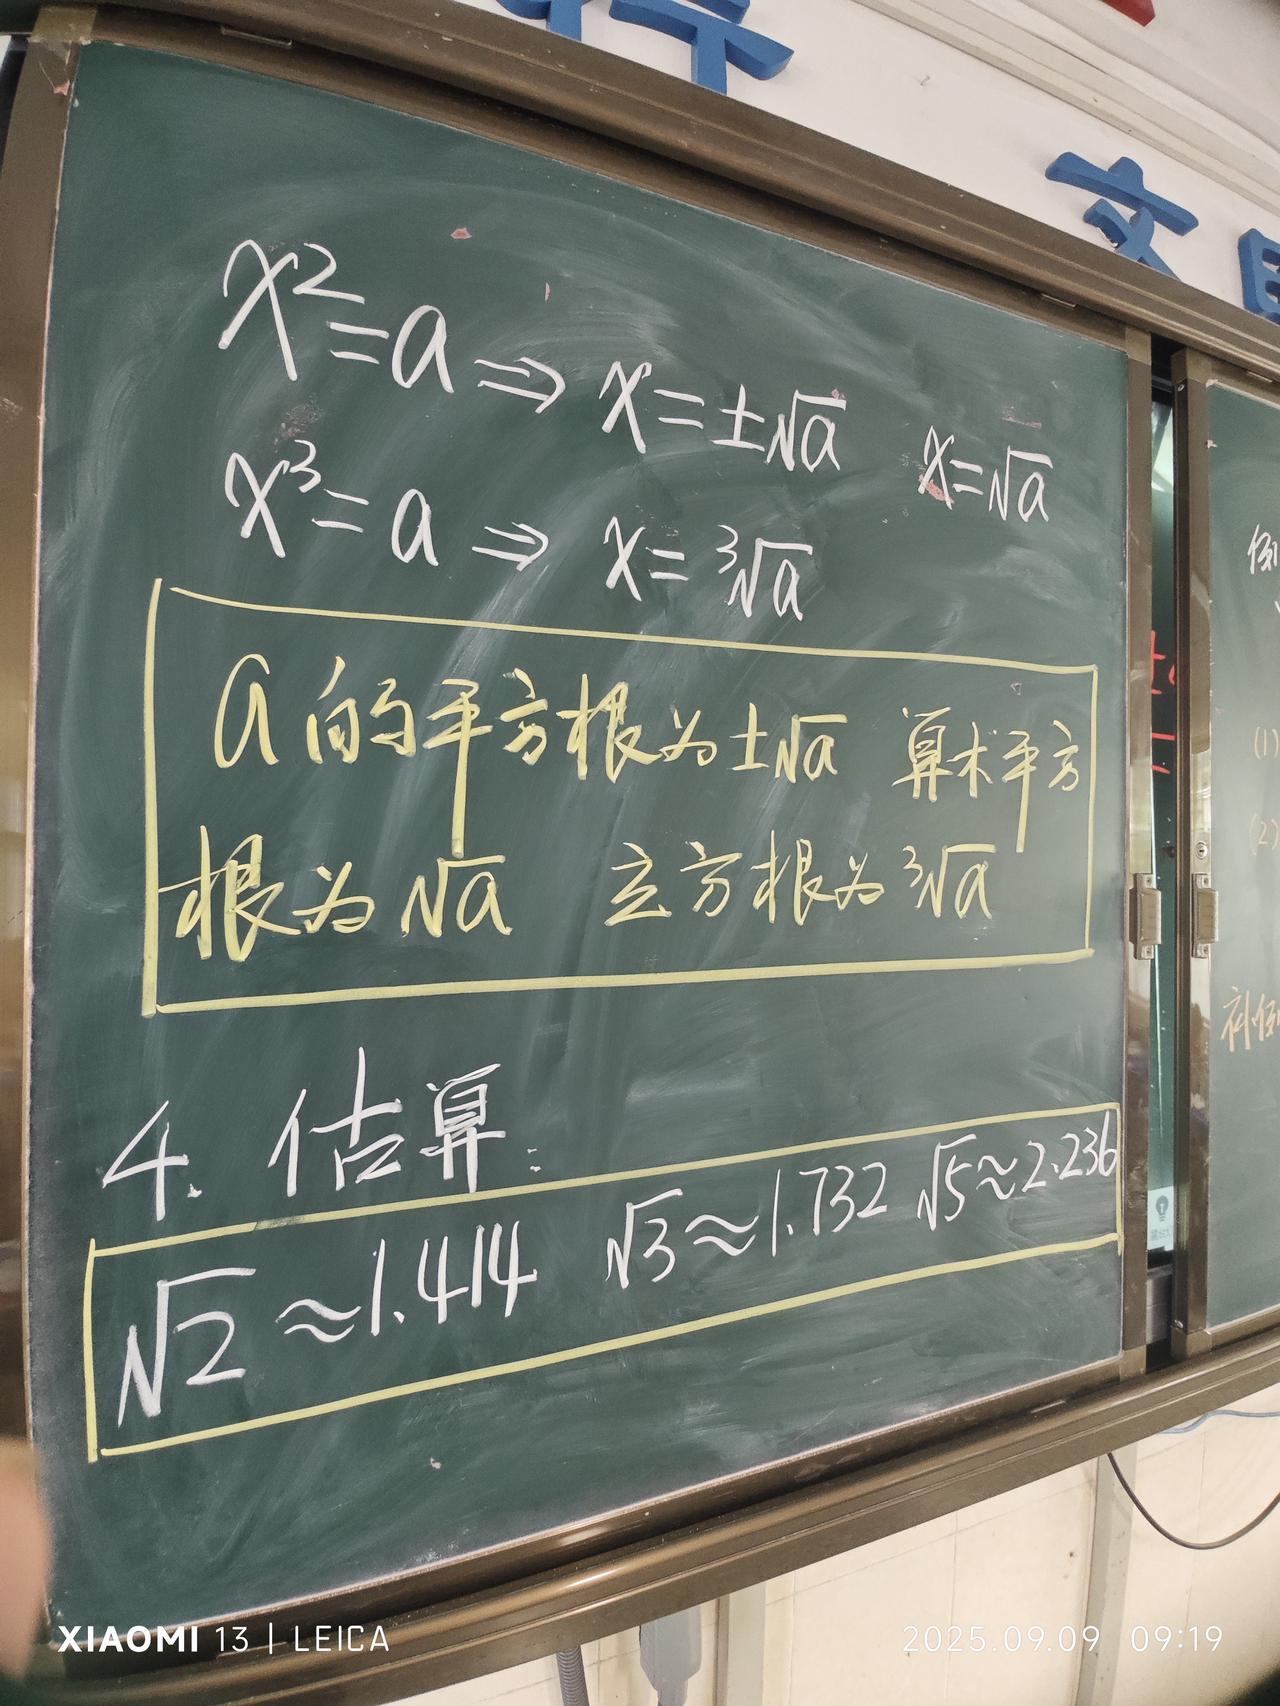 行
文
x²=a⇒x=±√a x=√a
x³=a⇒x=³√a
a的平方根为±√a 算术平方
根为√a 立方根为³√a
4.估算:
√2≈1.414 √3≈1.732 √5≈2.236
例
(1)
(2)
补例
XIAOMI 13 | LEICA
2025.09.09 09:19